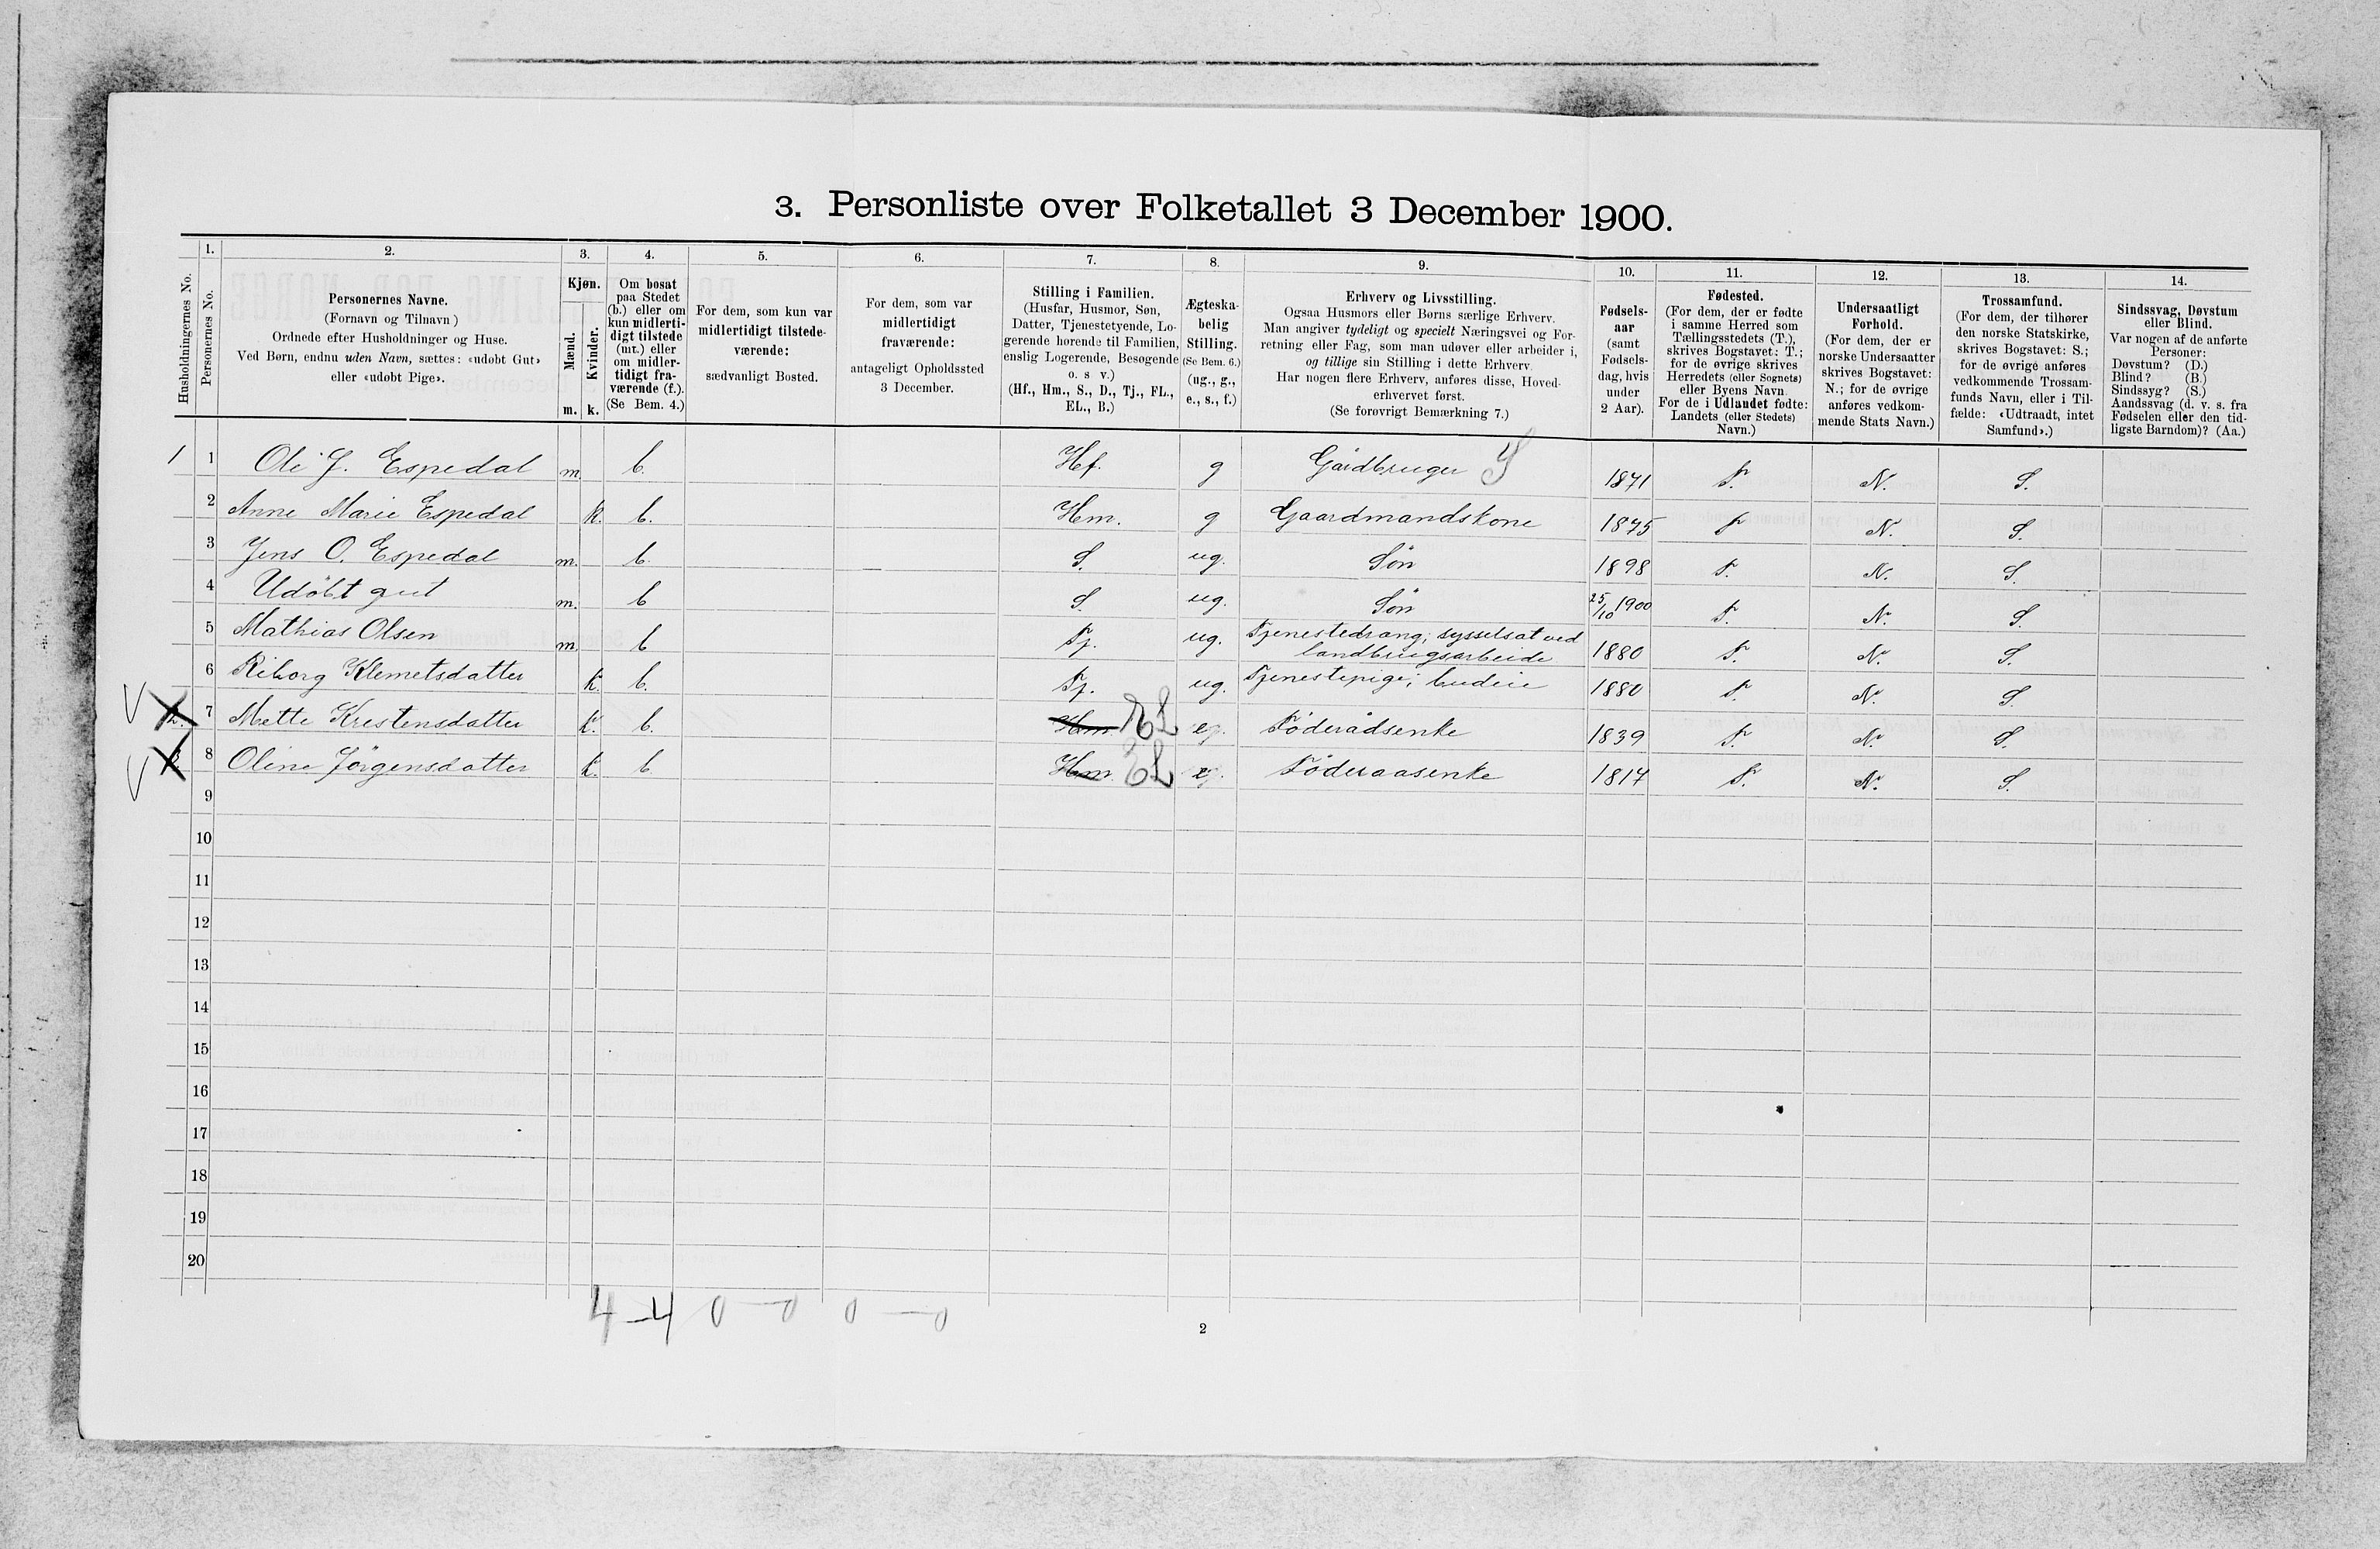 3. Personliste over Folketallet 3 December 1900.
Husholdningernes No.
1.
Personernes No.
2.
Personernes Navne.
(Fornavn og Tilnavn)
Ordnede efter Husholdninger og Huse.
Ved Børn, endnu uden Navn, sættes: «udøbt Gut»
eller «udøbt Pige».
3.
Kjøn.
Mænd.
Kvinder.
m.
k.
4.
Om bosat
paa Stedet
(b.) eller om
kun midlerti-
digt tilstede
(mt.) eller
om midler-
tidigt fra-
værende (f.).
(Se Bem. 4.)
5.
For dem, som kun var
midlertidigt tilstede-
værende:
sædvanligt Bosted.
6.
For dem, som var
midlertidigt
fraværende:
antageligt Opholdssted
3 December.
7.
Stilling i Familien.
(Husfar, Husmor, Søn,
Datter, Tjenestetyende, Lo-
gerende hørende til Familien,
enslig Logerende, Besøgende
o. s v.)
(Hf., Hm., S., D., Tj., FL.,
EL., B.)
8.
Ægteska-
belig
Stilling.
(Se Bem. 6.)
(ug., g.,
e., s., f.)
9.
Erhverv og Livsstilling.
Ogsaa Husmors eller Børns særlige Erhverv.
Man angiver tydeligt og specielt Næringsvei og For-
retning eller Fag, som man udøver eller arbeider i,
og tillige sin Stilling i dette Erhverv.
Har nogen flere Erhverv, anføres disse, Hoved-
erhvervet først.
(Se forøvrigt Bemærkning 7.)
10.
Fødsels-
aar
(samt
Fødsels-
dag, hvis
under
2 Aar).
11.
Fødested.
(For dem, der er fødte
i samme Herred som
Tællingsstedets (T.),
skrives Bogstavet: T.;
for de øvrige skrives
Herredets (eller Sognets)
eller Byens Navn.
For de i Udlandet fødte:
Landets (eller Stedets)
Navn.)
12.
Undersaatligt
Forhold.
(For dem, der er
norske Undersaatter
skrives Bogstavet:
N.; for de øvrige
anføres vedkom-
mende Stats Navn.)
13.
Trossamfund.
(For dem, der tilhører
den norske Statskirke,
skrives Bogstavet: S.;
for de øvrige anføres
vedkommende Trossam-
funds Navn, eller i Til-
fælde: «Udtraadt, intet
Samfund».)
14.
Sindssvag, Døvstum
eller Blind.
Var nogen af de anførte
Personer:
Døvstum? (D.)
Blind? (B.)
Sindssyg? (S.)
Aandssvag (d. v. s. fra
Fødselen eller den tid-
ligste Barndom)? (Aa.)
1 1 Ole J. Espedal m. b. Hf. g Gårdbruger S 1871 T. N. S.
2 Anne Marie Espedal k. b. Hm. g Gaardmandskone 1875 T N. S.
3 Jens O. Espedal m. b. S. ug. Søn 1898 T. N. S.
4 Udøbt gut m. b S. ug. Søn 25/10 1900 T. N. S.
5 Mathias Olsen m. b Tj. ug. Tjenestedrang; sysselsat ved
landbrugsarbeide 1880 T. N. S.
6 Riborg Klemetsdatter k. b. Tj. ug. Tjenestepige; budeie 1880 T. N. S.
V 2. 7 Mette Krestensdatter k. b. Hm. EL e. Föderådsenke 1839 T. N. S.
V 8 Oline Jörgensdatter k. b Hm. EL e. Föderaasenke 1817 T. N. S.
9
10
11
12
13
14
15
16
17
18
19
20
4 – 4 0 – 0 0 – 0
2